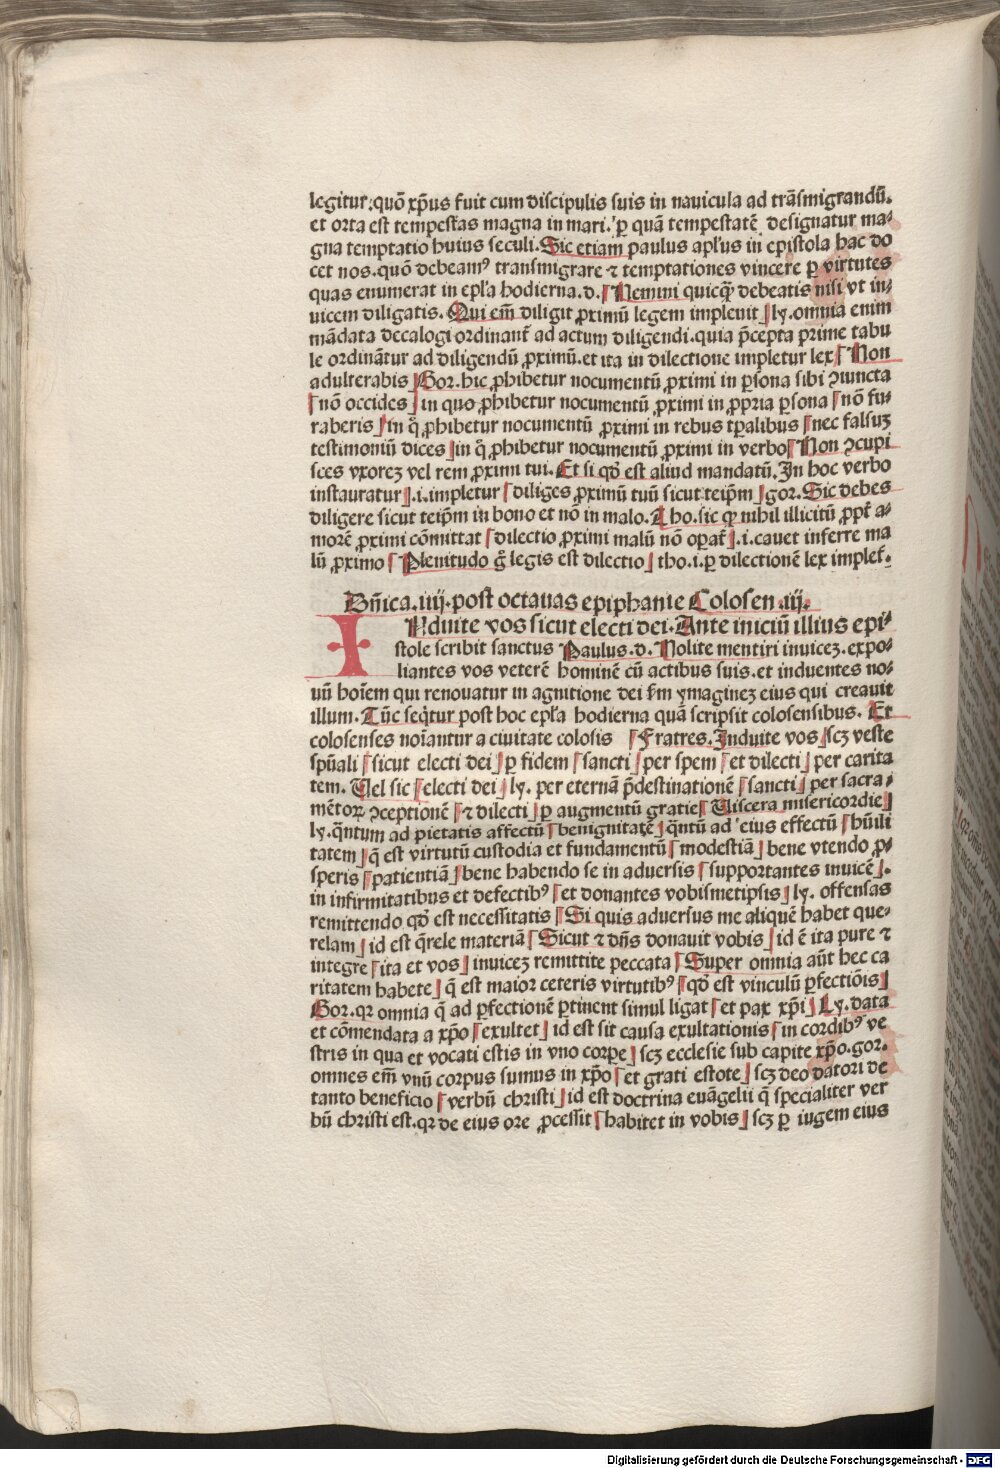 legitur.quō xp̄us fuit cum discipulis suis in nauicula ad trāsmigrandū.
et orta est tempestas magna in mari.ꝑ quā tempestatē designatur ma⸗
gna temptatio huius seculi.Sic etiam paulus apl'us in epistola hac do
cet nos.quō debeamꝰ transmigrare ⁊ temptationes vincere ꝑ virtutes
quas enumerat in epl'a hodierna.d. Nemini quicꝙ̄ debeatis nisi vt in⸗
uicem diligatis. Qui em̄ diligit ꝓximū legem impleuit ly.omnia enim
mādata decalogi ordinant̄ ad actum diligendi.quia p̄cepta prime tabu
le ordinātur ad diligendū ꝓximū.et ita in dilectione impletur lex Non
adulterabis Gor.hic ꝓhibetur nocumentū ꝓximi in ꝑsona sibi ꝯiuncta
nō occides in quo ꝓhibetur nocumentū ꝓximi in ꝓpria ꝑsona nō fu⸗
raberis in q̄ ꝓhibetur nocumentū ꝓximi in rebus tꝑalibus nec falsuꝫ
testimoniū dices in q̄ ꝓhibetur nocumentū ꝓximi in verbo Non ꝯcupi
sces vxoreꝫ vel rem ꝓximi tui. Et si qd̄ est aliud mandatū.In hoc verbo
instauratur .i.impletur diliges ꝓximū tuū sicut teip̄m gor. Sic debes
diligere sicut teip̄m in bono et nō in malo.Tho.sic ꝙ nihil illicitū ꝓpt̄ a⸗
morē ꝓximi cōmittat dilectio ꝓximi malū nō oꝑat̄ .i.cauet inferre ma
lū ꝓximo Plenitudo g̊ legis est dilectio tho.i.ꝑ dilectionē lex implet̄.
Dn̄ica.iiij.post octauas epiphanie Colosen.iij.
INduite vos sicut electi dei.Ante iniciū illius epi⸗
stole scribit sanctus Paulus.d. Nolite mentiri inuiceꝫ.expo⸗
liantes vos veterē hominē cū actibus suis.et induentes no⸗
uū hoīem qui renouatur in agnitione dei fm̄ ymagineꝫ eius qui creauit
illum. Tūc seq̄tur post hoc epl'a hodierna quā scripsit colosensibus. Et
colosenses noīantur a ciuitate colosis Fratres.Induite vos scꝫ veste
spūali sicut electi dei ꝑ fidem sancti per spem et dilecti per carita
tem. Uel sic electi dei ly. per eternā p̄destinationē sancti per sacra⸗
mētoꝝ ꝯceptionē ⁊ dilecti ꝑ augmentū gratie Uiscera misericordie
ly.q̄ntum ad pietatis affectū benignitatē q̄ntū ad eius effectū hūili
tatem q̄ est virtutū custodia et fundamentū modestiā bene vtendo ꝓ⸗
speris patientiā bene habendo se in aduersis supportantes inuicē .
in infirmitatibus et defectibꝰ et donantes vobismetipsis ly. offensas
remittendo qd̄ est necessitatis Si quis aduersus me aliquē habet que⸗
relam id est q̄rele materiā Sicut ⁊ dn̄s donauit vobis id ē ita pure ⁊
integre ita et vos inuiceꝫ remittite peccata Super omnia aūt hec ca
ritatem habete q̄ est maior ceteris virtutibꝰ qd̄ est vinculū ꝑfectiōis
Gor.qꝛ omnia q̄ ad ꝑfectionē ꝑtinent simul ligat et pax xp̄i Ly.data
et cōmendata a xp̄o exultet id est sit causa exultationis in cordibꝰ ve
stris in qua et vocati estis in vno corꝑe scꝫ ecclesie sub capite xp̄o.gor.
omnes em̄ vnū corpus sumus in xp̄o et grati estote scꝫ deo datori de
tanto beneficio verbū christi id est doctrina euāgelii q̄ specialiter ver
bū christi est.qꝛ de eius ore ꝓcessit habitet in vobis scꝫ ꝑ iugem eius
Digitalisierung gefördert durch die Deutsche Forschungsgemeinschaft - DFG